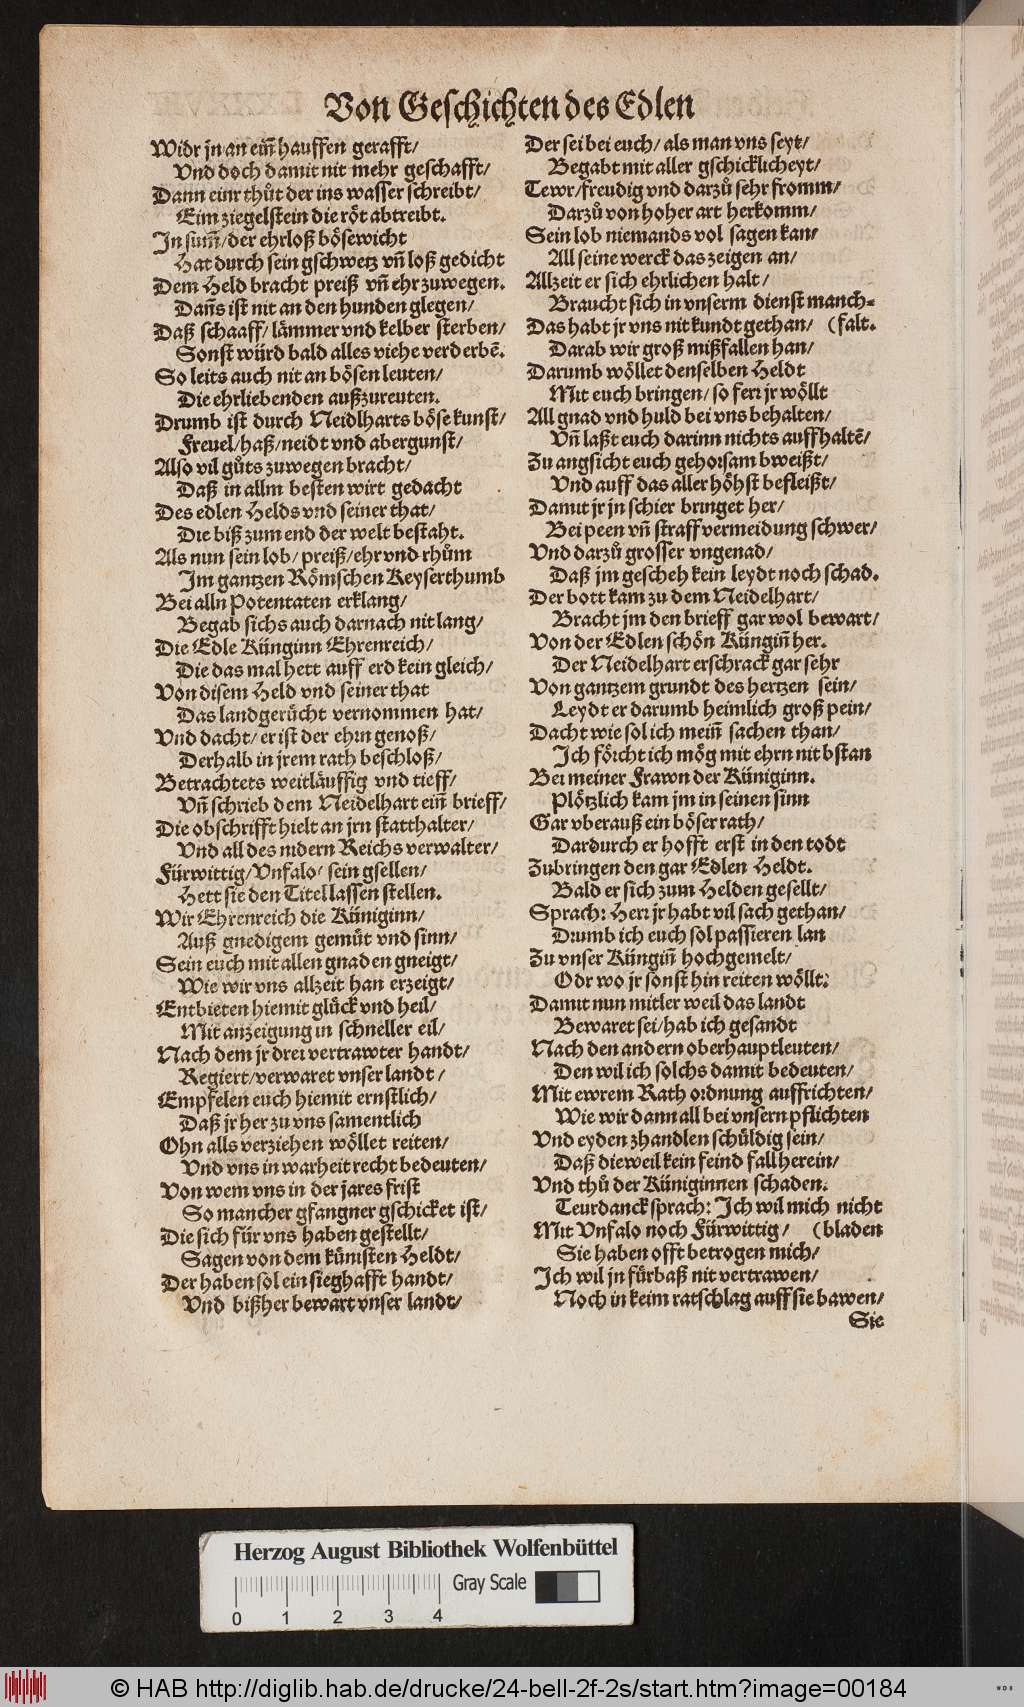 Von Geschichten des Edlen
Widr jn an eiñ hauffen gerafft/
Vnd doch damit nit mehr geschafft/
Dann einr thůt der ins wasser schreibt/
Eim ziegelstein die röt abtreibt.
In sum̃/ der ehrloß bösewicht
Hat durch sein gschwetz vñ loß gedicht
Dem Held bracht preiß vñ ehr zuwegen.
Dañs ist nit an den hunden glegen/
Daß schaaff/ lämmer vnd kelber sterben/
Sonst würd bald alles viehe verderbẽ.
So leits auch nit an bösen leuten/
Die ehrliebenden außzureuten.
Drumb ist durch Neidlharts böse kunst/
Freuel/ haß/ neidt vnd abergunst/
Also vil gůts zuwegen bracht/
Daß in allm besten wirt gedacht
Des edlen Helds vnd seiner that/
Die biß zum end der welt bestaht.
Als nun sein lob/ preiß/ ehr vnd rhům
Im gantzen Römschen Keyserthumb
Bei alln Potentaten erklang/
Begab sichs auch darnach nit lang/
Die Edle Künginn Ehrenreich/
Die das mal hett auff erd kein gleich/
Von disem Held vnd seiner that
Das landgerücht vernommen hat/
Vnd dacht/ er ist der ehrn genoß/
Derhalb in jrem rath beschloß/
Betrachtets weitläuffig vnd tieff/
Vñ schrieb dem Neidelhart eiñ brieff/
Die obschrifft hielt an jrn statthalter/
Vnd all des nidern Reichs verwalter/
Fürwittig/ Vnfalo/ sein gsellen/
Hett sie den Titel lassen stellen.
Wir Ehrenreich die Küniginn/
Auß gnedigem gemüt vnd sinn/
Sein euch mit allen gnaden gneigt/
Wie wir vns allzeit han erzeigt/
Entbieten hiemit glück vnd heil/
Mit anzeigung in schneller eil/
Nach dem jr drei vertrawter handt/
Regiert/ verwaret vnser landt/
Empfelen euch hiemit ernstlich/
Daß jr her zu vns samentlich
Ohn alls verziehen wöllet reiten/
Vnd vns in warheit recht bedeuten/
Von wem vns in der jares frist
So mancher gfangner gschicket ist/
Die sich für vns haben gestellt/
Sagen von dem künisten Heldt/
Der haben sol ein sieghafft handt/
Vnd bißher bewart vnser landt/
Der sei bei euch/ als man vns seyt/
Begabt mit aller gschicklicheyt/
Tewr/ freudig vnd darzů sehr fromm/
Darzů von hoher art herkomm/
Sein lob niemands vol sagen kan/
All seine werck das zeigen an/
Allzeit er sich ehrlichen halt/
Braucht sich in vnserm dienst manch-
Das habt jr vns nit kundt gethan/ (falt.
Darab wir groß mißfallen han/
Darumb wöllet denselben Heldt
Mit euch bringen/ so ferr jr wöllt
All gnad vnd huld bei vns behalten/
Vñ laßt euch darinn nichts auffhaltẽ/
Zu angsicht euch gehorsam bweißt/
Vnd auff das aller höhst befleißt/
Damit jr jn schier bringet her/
Bei peen vñ straff vermeidung schwer/
Vnd darzů grosser vngenad/
Daß jm gescheh kein leydt noch schad.
Der bott kam zu dem Neidelhart/
Bracht jm den brieff gar wol bewart/
Von der Edlen schön Küngiñ her.
Der Neidelhart erschrack gar sehr
Von gantzem grundt des hertzen sein/
Leydt er darumb heimlich groß pein/
Dacht wie sol ich meiñ sachen than/
Ich förcht ich mög mit ehrn nit bstan
Bei meiner Frawn der Küniginn.
Plötzlich kam jm in seinen sinn
Gar vberauß ein böser rath/
Dardurch er hofft erst in den todt
Zubringen den gar Edlen Heldt.
Bald er sich zum Helden gesellt/
Sprach: Herr jr habt vil sach gethan/
Drumb ich euch sol passieren lan
Zu vnser Küngiñ hochgemelt/
Odr wo jr sonst hin reiten wöllt:
Damit nun mitler weil das landt
Bewaret sei/ hab ich gesandt
Nach den andern oberhauptleuten/
Den wil ich solchs damit bedeuten/
Mit ewrem Rath ordnung auffrichten/
Wie wir dann all bei vnsern pflichten
Vnd eyden zhandlen schüldig sein/
Daß dieweil kein feind fall herein/
Vnd thů der Küniginnen schaden.
Teurdanck sprach: Ich wil mich nicht
Mit Vnfalo noch Fürwittig/ (bladen
Sie haben offt betrogen mich/
Ich wil jn fürbaß nit vertrawen/
Noch in keim ratschlag auff sie bawen/
Sie
Herzog August Bibliothek Wolfenbüttel
Gray Scale
0 1 2 3 4
© HAB http://diglib.hab.de/drucke/24-bell-2f-2s/start.htm?image=00184